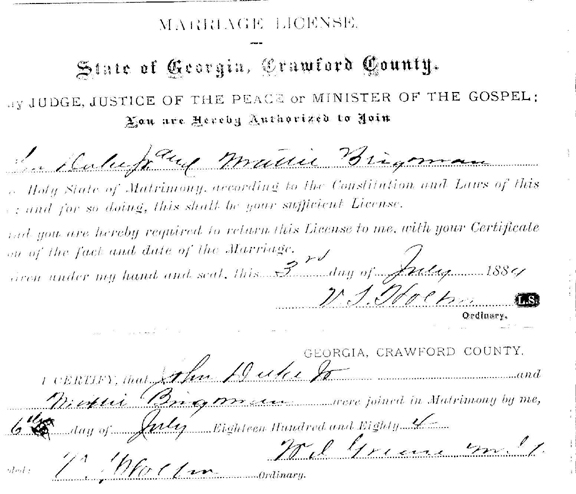 MARRIAGE LICENSE.
State of Georgia, Crawford County.
ny JUDGE, JUSTICE OF THE PEACE or MINISTER OF THE GOSPEL:
You are Hereby Authorized to Join
Jr and Mattie Bringman
Holy State of Matrimony, according to the Constitution and Laws of this
; and for so doing, this shall be your sufficient License.
nd you are hereby required to return this License to me, with your Certificate
on of the fact and date of the Marriage.
iven under my hand and seal, this 3rd day of July 1884
L.S.
Ordinary.
GEORGIA, CRAWFORD COUNTY.
I CERTIFY, that John Jr and
Mattie Bringman were joined in Matrimony by me,
6th day of July Eighteen Hundred and Eighty 4
ded: Ordinary.